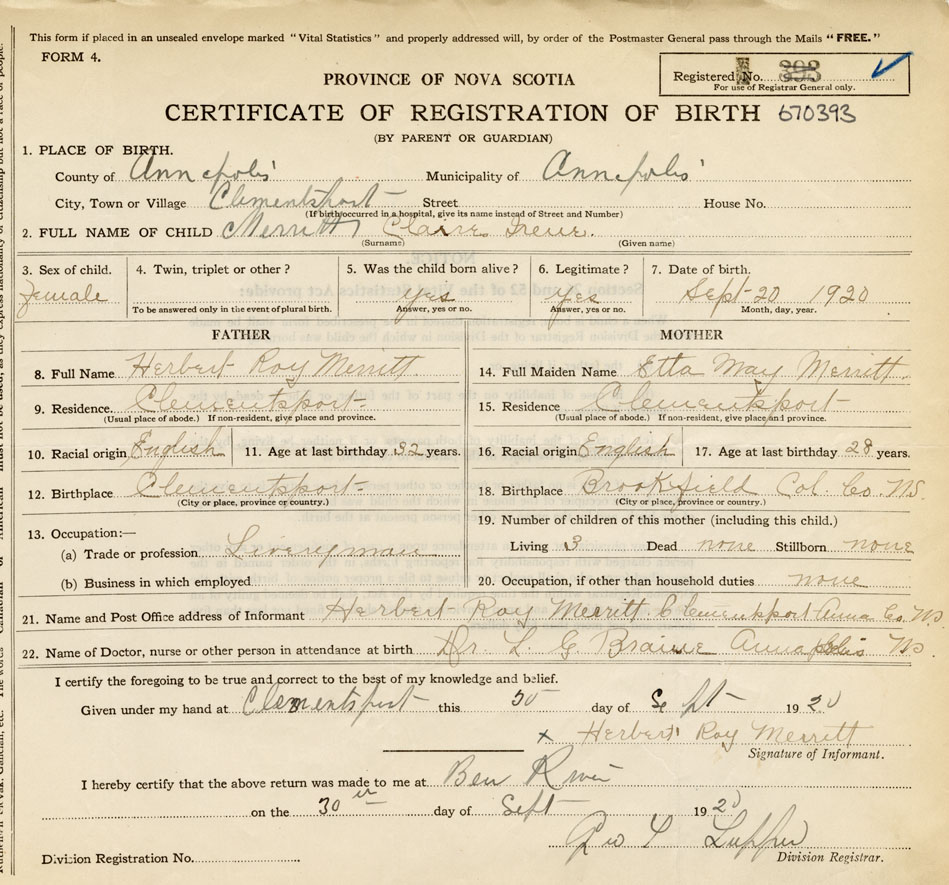 This form if placed in an unsealed envelope marked "Vital Statistics" and properly addressed will, by order of the Postmaster General pass through the Mails "FREE."
FORM 4.
PROVINCE OF NOVA SCOTIA
Registered No. 393
For use of Registrar General only.
CERTIFICATE OF REGISTRATION OF BIRTH 670393
(BY PARENT OR GUARDIAN)
1. PLACE OF BIRTH.
County of Annapolis Municipality of Annapolis
City, Town or Village Clementsport Street House No.
(If birth occurred in a hospital, give its name instead of Street and Number)
2. FULL NAME OF CHILD Merritt Claire Irene.
(Surname) (Given name)
3. Sex of child. 4. Twin, triplet or other? 5. Was the child born alive? 6. Legitimate? 7. Date of birth.
Female yes yes Sept 20 1920
To be answered only in the event of plural birth. Answer, yes or no. Answer, yes or no. Month, day, year.
FATHER
8. Full Name Herbert Roy Merritt
9. Residence. Clementsport
(Usual place of abode.) If non-resident, give place and province.
10. Racial origin English 11. Age at last birthday 32 years.
12. Birthplace Clementsport
(City or place, province or country.)
13. Occupation:—
(a) Trade or profession Liveryman
(b) Business in which employed
MOTHER
14. Full Maiden Name Etta May Merritt
15. Residence Clementsport
(Usual place of abode.) If non-resident, give place and province.
16. Racial origin English 17. Age at last birthday 28 years.
18. Birthplace Brookfield Col. Co. N.S.
(City or place, province or country.)
19. Number of children of this mother (including this child.)
Living 3 Dead none Stillborn none
20. Occupation, if other than household duties none
21. Name and Post Office address of Informant Herbert Roy Merritt. Clementsport Anna Co. N.S.
22. Name of Doctor, nurse or other person in attendance at birth Dr. L. G. Braine Annapolis NS
I certify the foregoing to be true and correct to the best of my knowledge and belief.
Given under my hand at Clementsport this 30 day of Sept 1920
x Herbert Roy Merritt
Signature of Informant.
I hereby certify that the above return was made to me at Bear River
on the 30 day of Sept 1920
Geo
Division Registration No. Division Registrar.